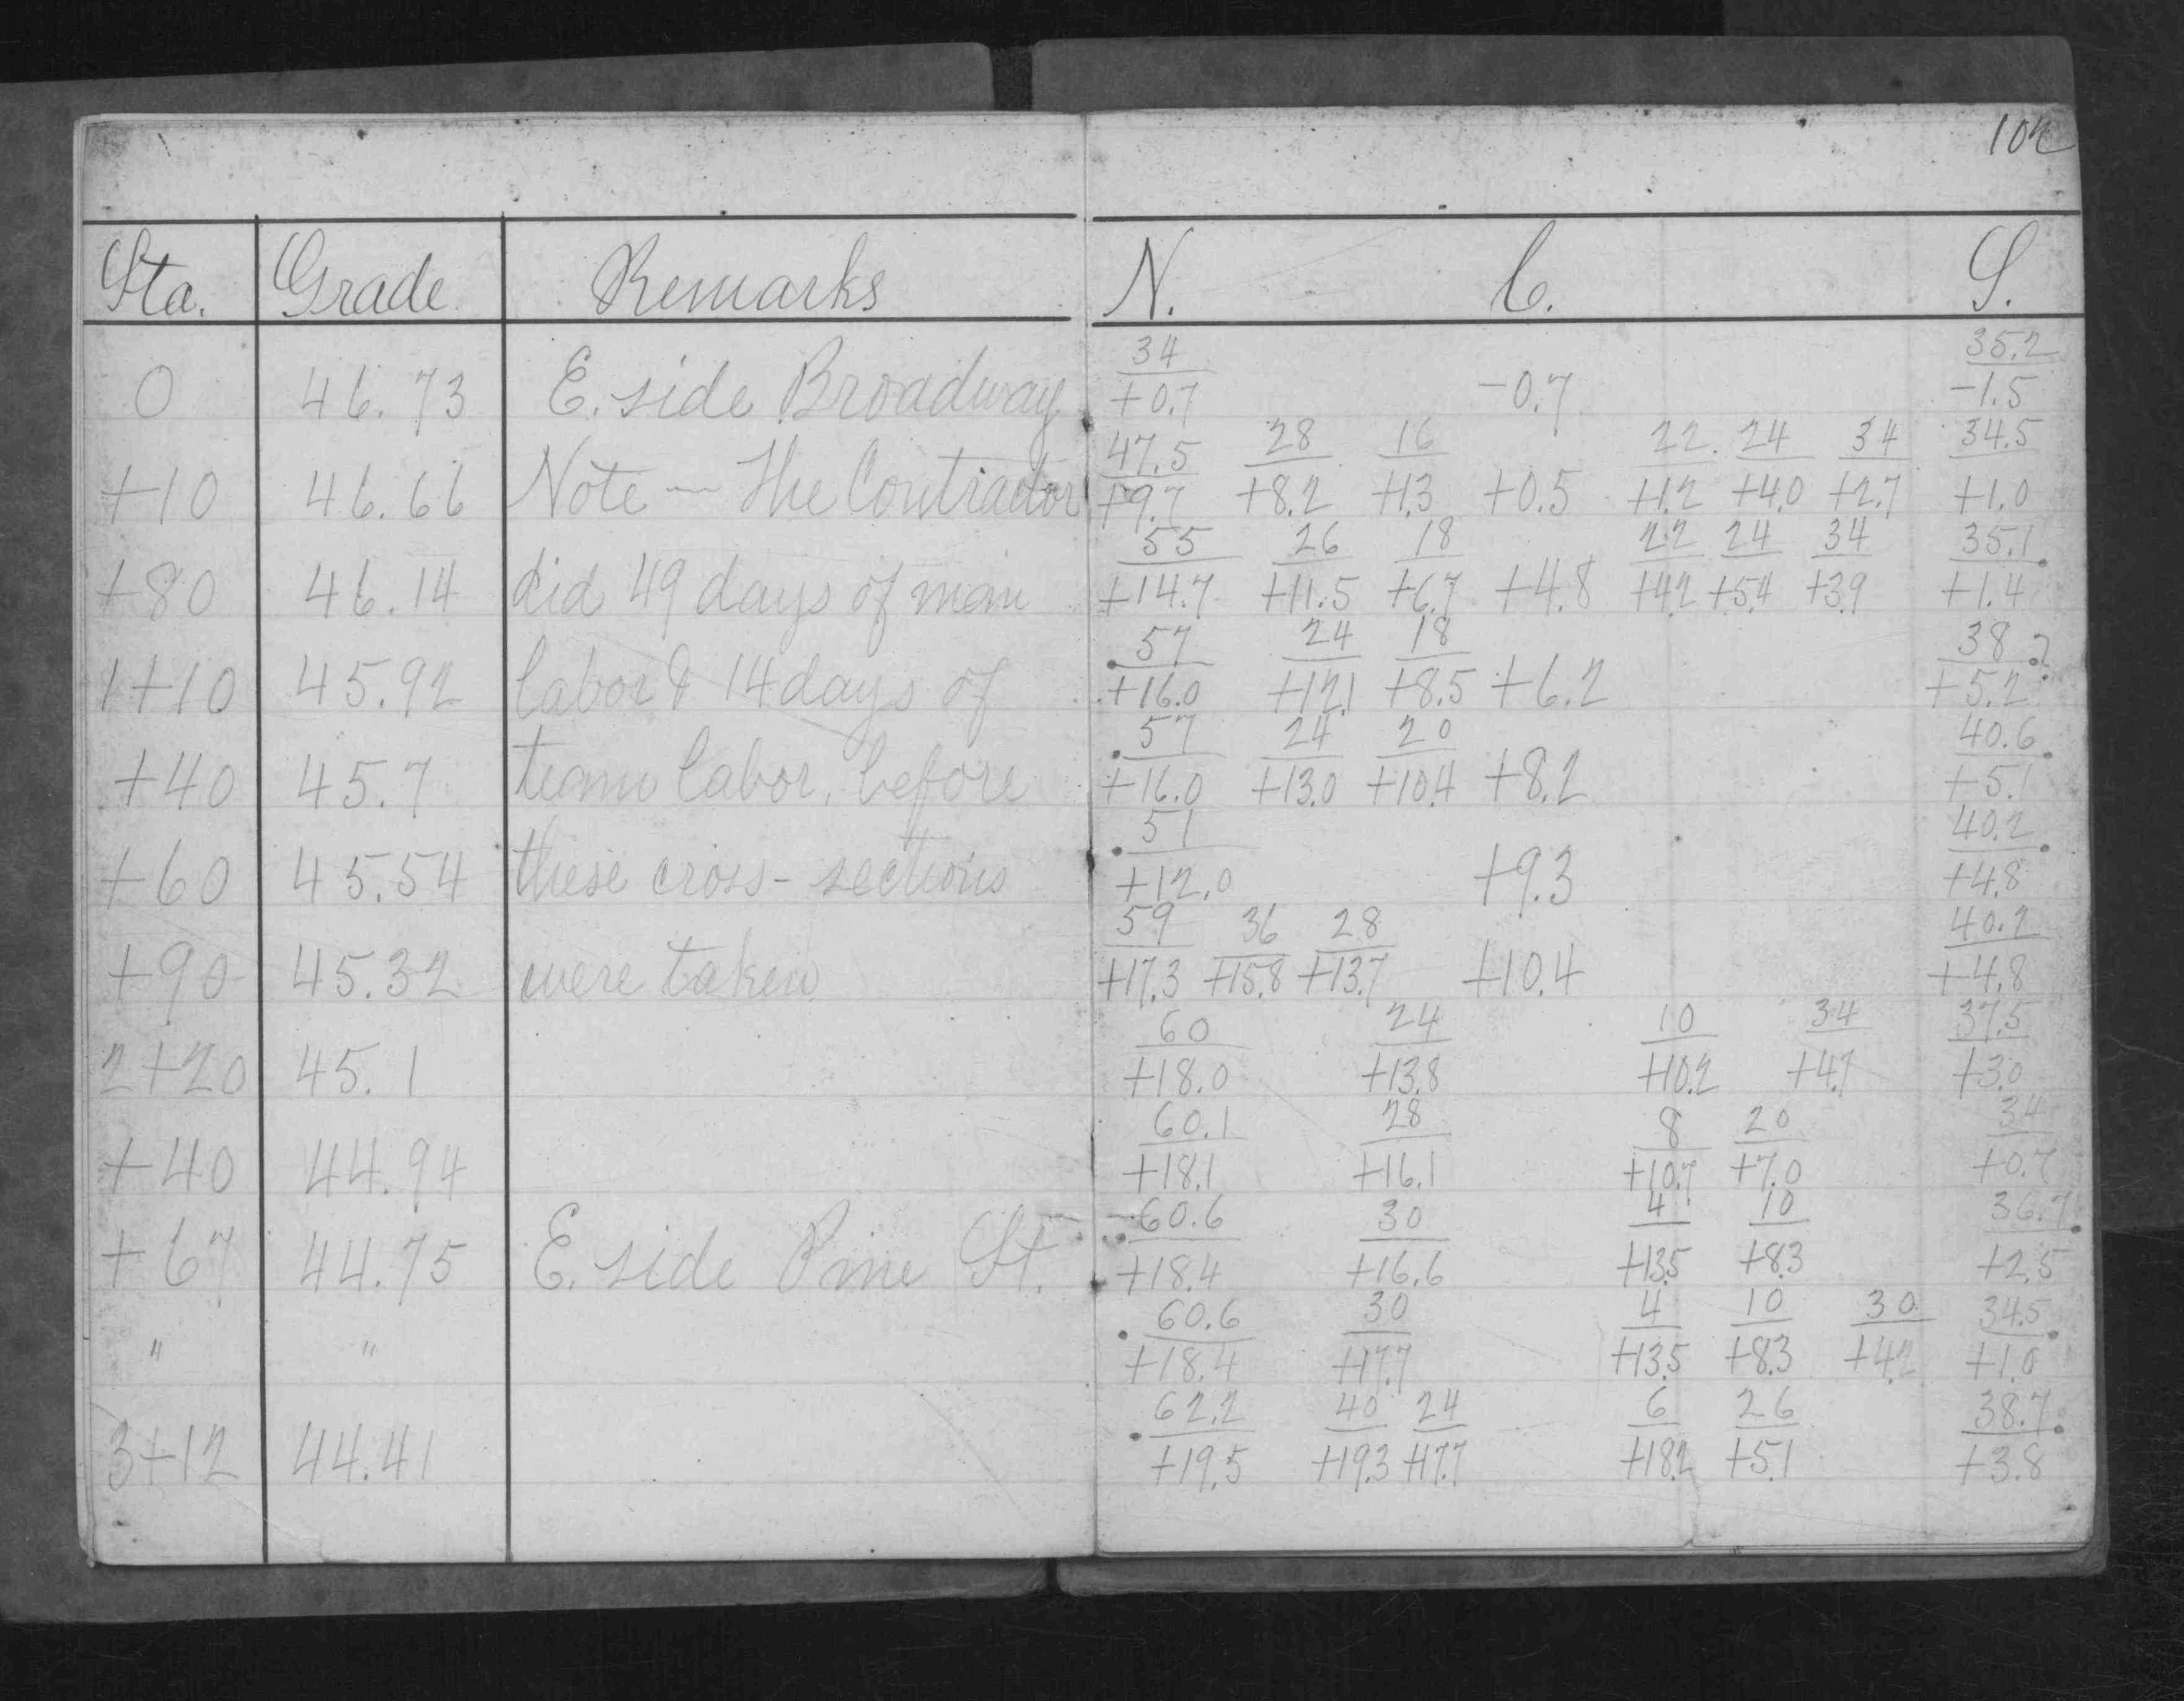 102
Sta. Grade Remarks N. C. S.
34 35.2
0 46.73 E. side Broadway +0.7 -0.7 -1.5
47.5 28 16 22 24 34 34.5
+10 46.66 Note — The Contractor +9.7 +8.2 +1.3 +0.5 +1.2 +4.0 +2.7 +1.0
55 26 18 22 24 34 35.1
+80 46.14 did 49 days of man +14.7 +11.5 +6.7 +4.8 +4.2 +5.4 +3.9 +1.4
57 24 18 38 ?
1+10 45.92 labor & 14 days of +16.0 +12.1 +8.5 +6.2 +5.2
57 24 20 40.6
+40 45.7 team labor, before +16.0 +13.0 +10.4 +8.2 +5.1
51 40.2
+60 45.54 these cross-sections +12.0 +9.3 +4.8
59 36 28 40.2
+90 45.32 were taken +17.3 +15.8 +13.7 +10.4 +4.8
60 24 10 34 37.5
2+20 45.1 +18.0 +13.8 +10.2 +4.7 +3.0
60.1 28 8 20 34
+40 44.94 +18.1 +16.1 +10.7 +7.0 +0.7
60.6 30 4 10 36.7
+67 44.75 E. side Pine St. +18.4 +16.6 +13.5 +8.3 +2.5
60.6 30 4 10 30 34.5
" " +18.4 +17.7 +13.5 +8.3 +4.2 +1.0
62.2 40 24 6 26 38.7
3+12 44.41 +19.5 +19.3 +17.7 +18.2 +5.1 +3.8